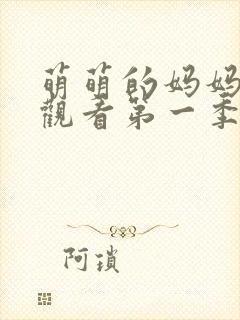 萌萌的妈妈
觀看第一季
阿瑣